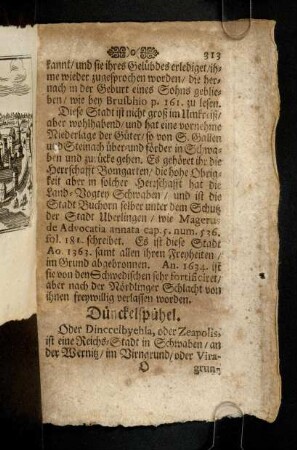 313
kannt/ und sie ihres Gelübdes erlediget/ ih-
me wieder zugesprochen worden/ die her-
nach in der Geburt eines Sohns geblie-
ben/ wie bey Bruschio p. 161. zu lesen.
Diese Stadt ist nicht groß im Umkreiß/
aber wohlhabend/ und hat eine vornehme
Niederlage der Güter/ so von S. Gallen
und Steinach über- und förder in Schwa-
ben und zurücke gehen. Es gehöret ihr die
Herrschafft Bomgarten/ die hohe Obrig-
keit aber in solcher Herrschafft hat die
Land-Vogtey Schwaben/ und ist die
Stadt Buchorn selber unter dem Schutz
der Stadt Uberlingen/ wie Magerus
de Advocatia armata cap. 5. num. 526.
fol. 181. schreibet. Es ist diese Stadt
Ao 1363. samt allen ihren Freyheiten/
im Grund abgebronnen. An. 1634. ist
sie von den Schwedischen sehr fortificiret/
aber nach der Nördlinger Schlacht von
ihnen freywillig verlassen worden.
Dünckelspühel.
Oder Dinccelbyehla, oder Zeapolis,
ist eine Reichs-Stadt in Schwaben/ an
der Wernitz/ im Virngrund/ oder Vira-
O grun-